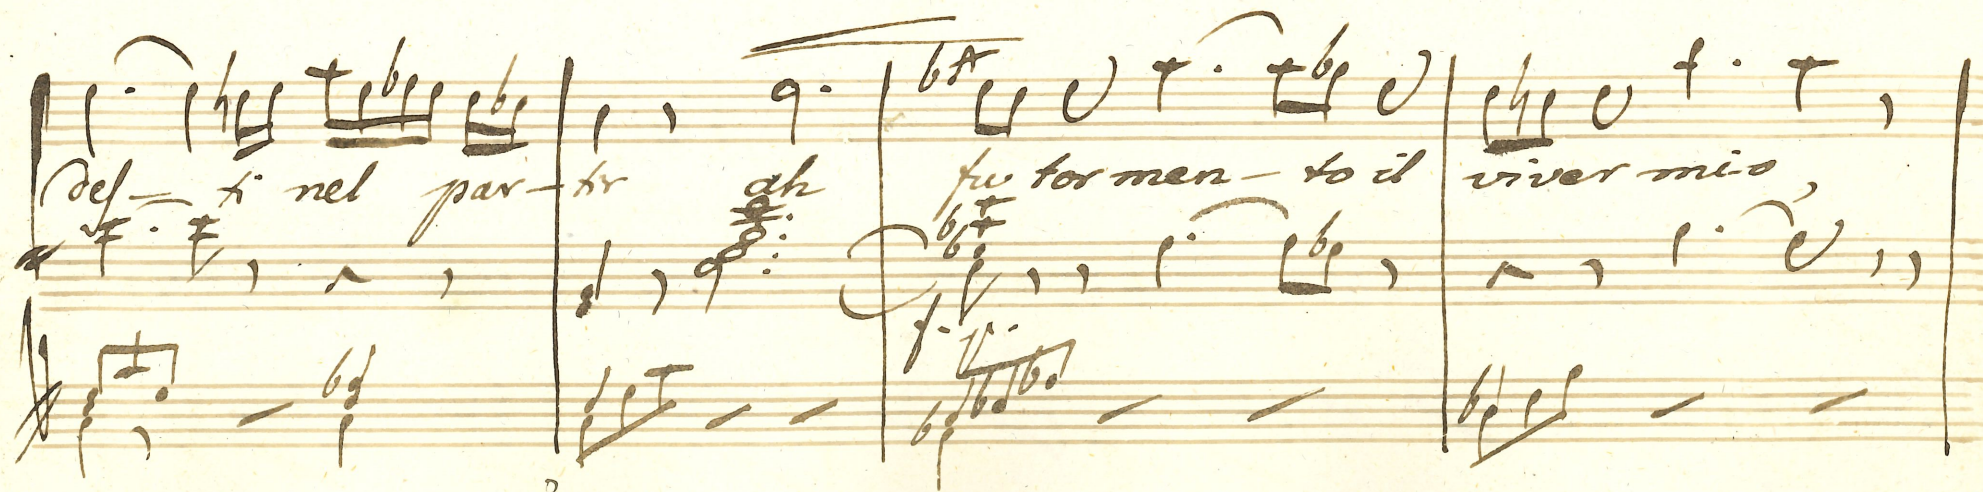 des - ti nel par - tir ah fu tormen - to il viver mio,
f. p.